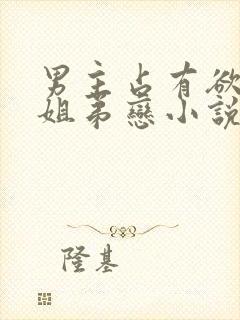 男主占有欲
姐弟戀小說
隆基